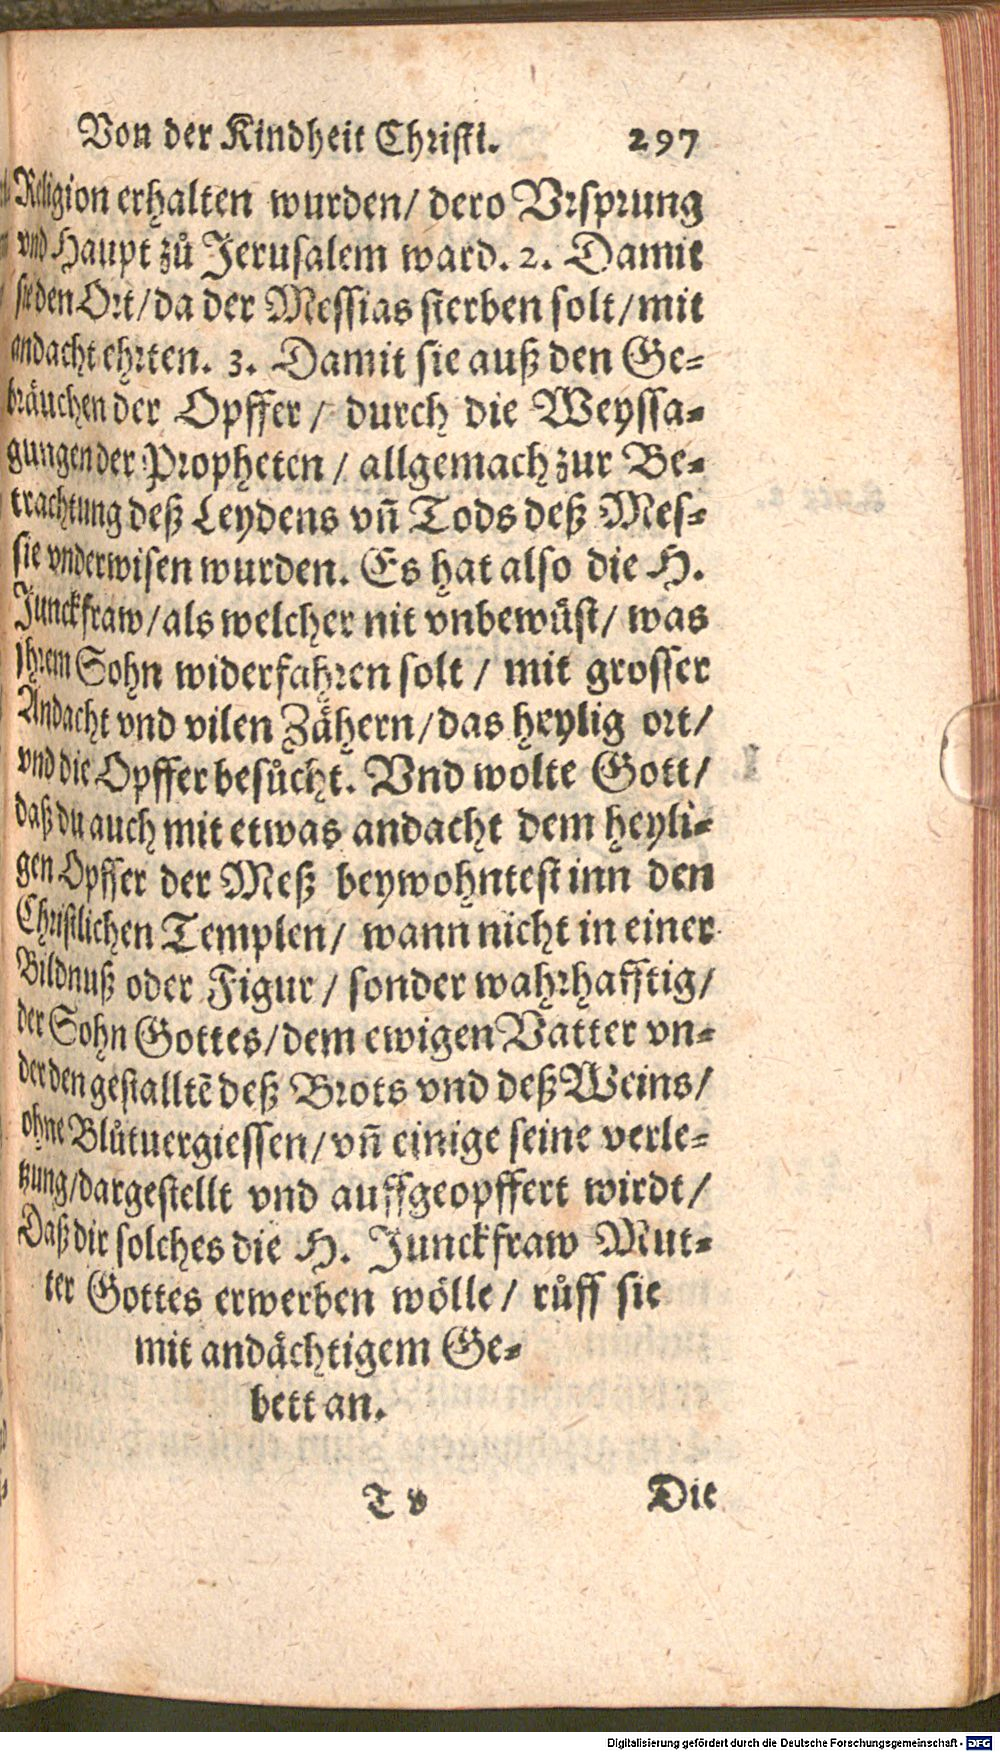 Von der Kindheit Christi. 297
Religion erhalten wurden/ dero Vrsprung
vnd Haupt zů Jerusalem ward. 2. Damit
sie den Ort/ da der Messias sterben solt/ mit
andacht ehrten. 3. Damit sie auß den Ge-
bräuchen der Opffer/ durch die Weyssa-
gungen der Propheten/ allgemach zur Be-
trachtung deß Leydens vñ Tods deß Mes-
sie vnderwisen wurden. Es hat also die H.
Junckfraw/ als welcher nit vnbewůst/ was
jhrem Sohn widerfahren solt/ mit grosser
Andacht vnd vilen Zähern/ das heylig ort/
vnd die Opffer besůcht. Vnd wolte Gott/
daß du auch mit etwas andacht dem heyli-
gen Opffer der Meß beywohntest inn den
Christlichen Templen/ wann nicht in einer
Bildnuß oder Figur/ sonder wahrhafftig/
der Sohn Gottes/ dem ewigen Vatter vn-
der den gestalltẽ deß Brots vnd deß Weins/
ohne Blůtuergiessen/ vñ einige seine verle-
tzung/ dargestellt vnd auffgeopffert wirdt/
Daß dir solches die H. Junckfraw Mut-
ter Gottes erwerben wölle/ růff sie
mit andächtigem Ge-
bett an.
T v Die
Digitalisierung gefördert durch die Deutsche Forschungsgemeinschaft - DFG